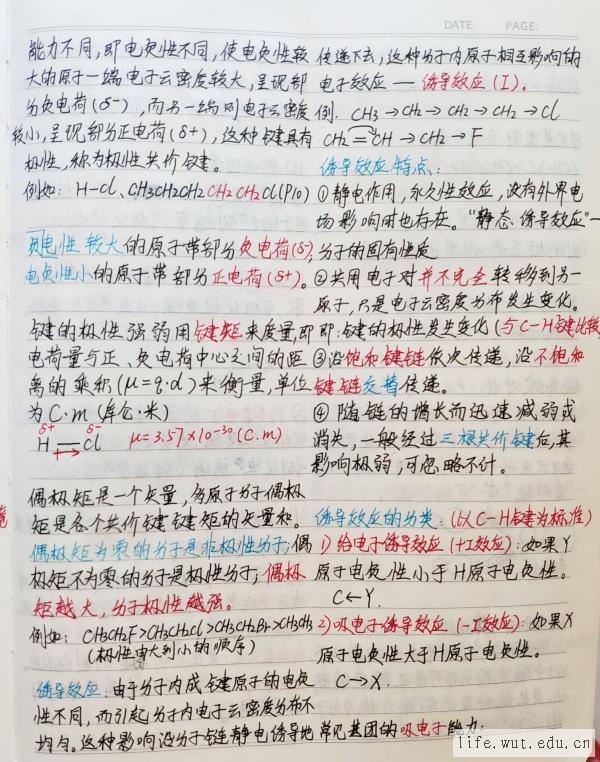 DATE. PAGE.
能力不同，即电负性不同，使电负性较
大的原子一端电子云密度较大，呈现部
分负电荷(δ-)，而另一端则电子云密度
较小，呈现部分正电荷(δ+)，这种键具有
极性，称为极性共价键。
例如：H-Cl、CH3CH2CH2CH2CH2Cl(P10)
负电性较大的原子带部分负电荷(δ-)
电负性小的原子带部分正电荷(δ+)。
键的极性强弱用键矩来度量，即
电荷量与正、负电荷中心之间的距
离的乘积(μ=q·d)来衡量，单位
为C·m(库仑·米)
δ+ δ-
H—Cl μ=3.57×10-30(C.m)
偶极矩是一个矢量，多原子分子偶极
矩是各个共价键键矩的矢量和。
偶极矩为零的分子是非极性分子；偶
极矩不为零的分子是极性分子；偶极
矩越大，分子极性越强。
例如：CH3CH2F>CH3CH2Cl>CH3CH2Br>CH3CH3
(极性由大到小的顺序)
诱导效应：由于分子内成键原子的电负
性不同，而引起分子内电子云密度分布不
均匀。这种影响沿分子链静电诱导地
传递下去，这种分子内原子相互影响的
电子效应——诱导效应(I)。
例. CH3→CH2→CH2→CH2→Cl
CH2=CH→CH2→F
诱导效应特点：
①静电作用，永久性效应，没有外界电
场影响时也存在。“静态诱导效应”—
分子的固有性质
②共用电子对并不完全转移到另一
原子，只是电子云密度分布发生变化。
即：键的极性发生变化(与C-H键比较)
③沿饱和键链依次传递，沿不饱和
键链交替传递。
④随链的增长而迅速减弱或
消失，一般经过三根共价键后，其
影响极弱，可忽略不计。
诱导效应的分类：(以C-H键为标准)
1)给电子诱导效应(+I效应)：如果Y
原子电负性小于H原子电负性。
C←Y.
2)吸电子诱导效应(-I效应)：如果X
原子电负性大于H原子电负性。
C→X.
常见基团的吸电子能力：
life.wut.edu.cn